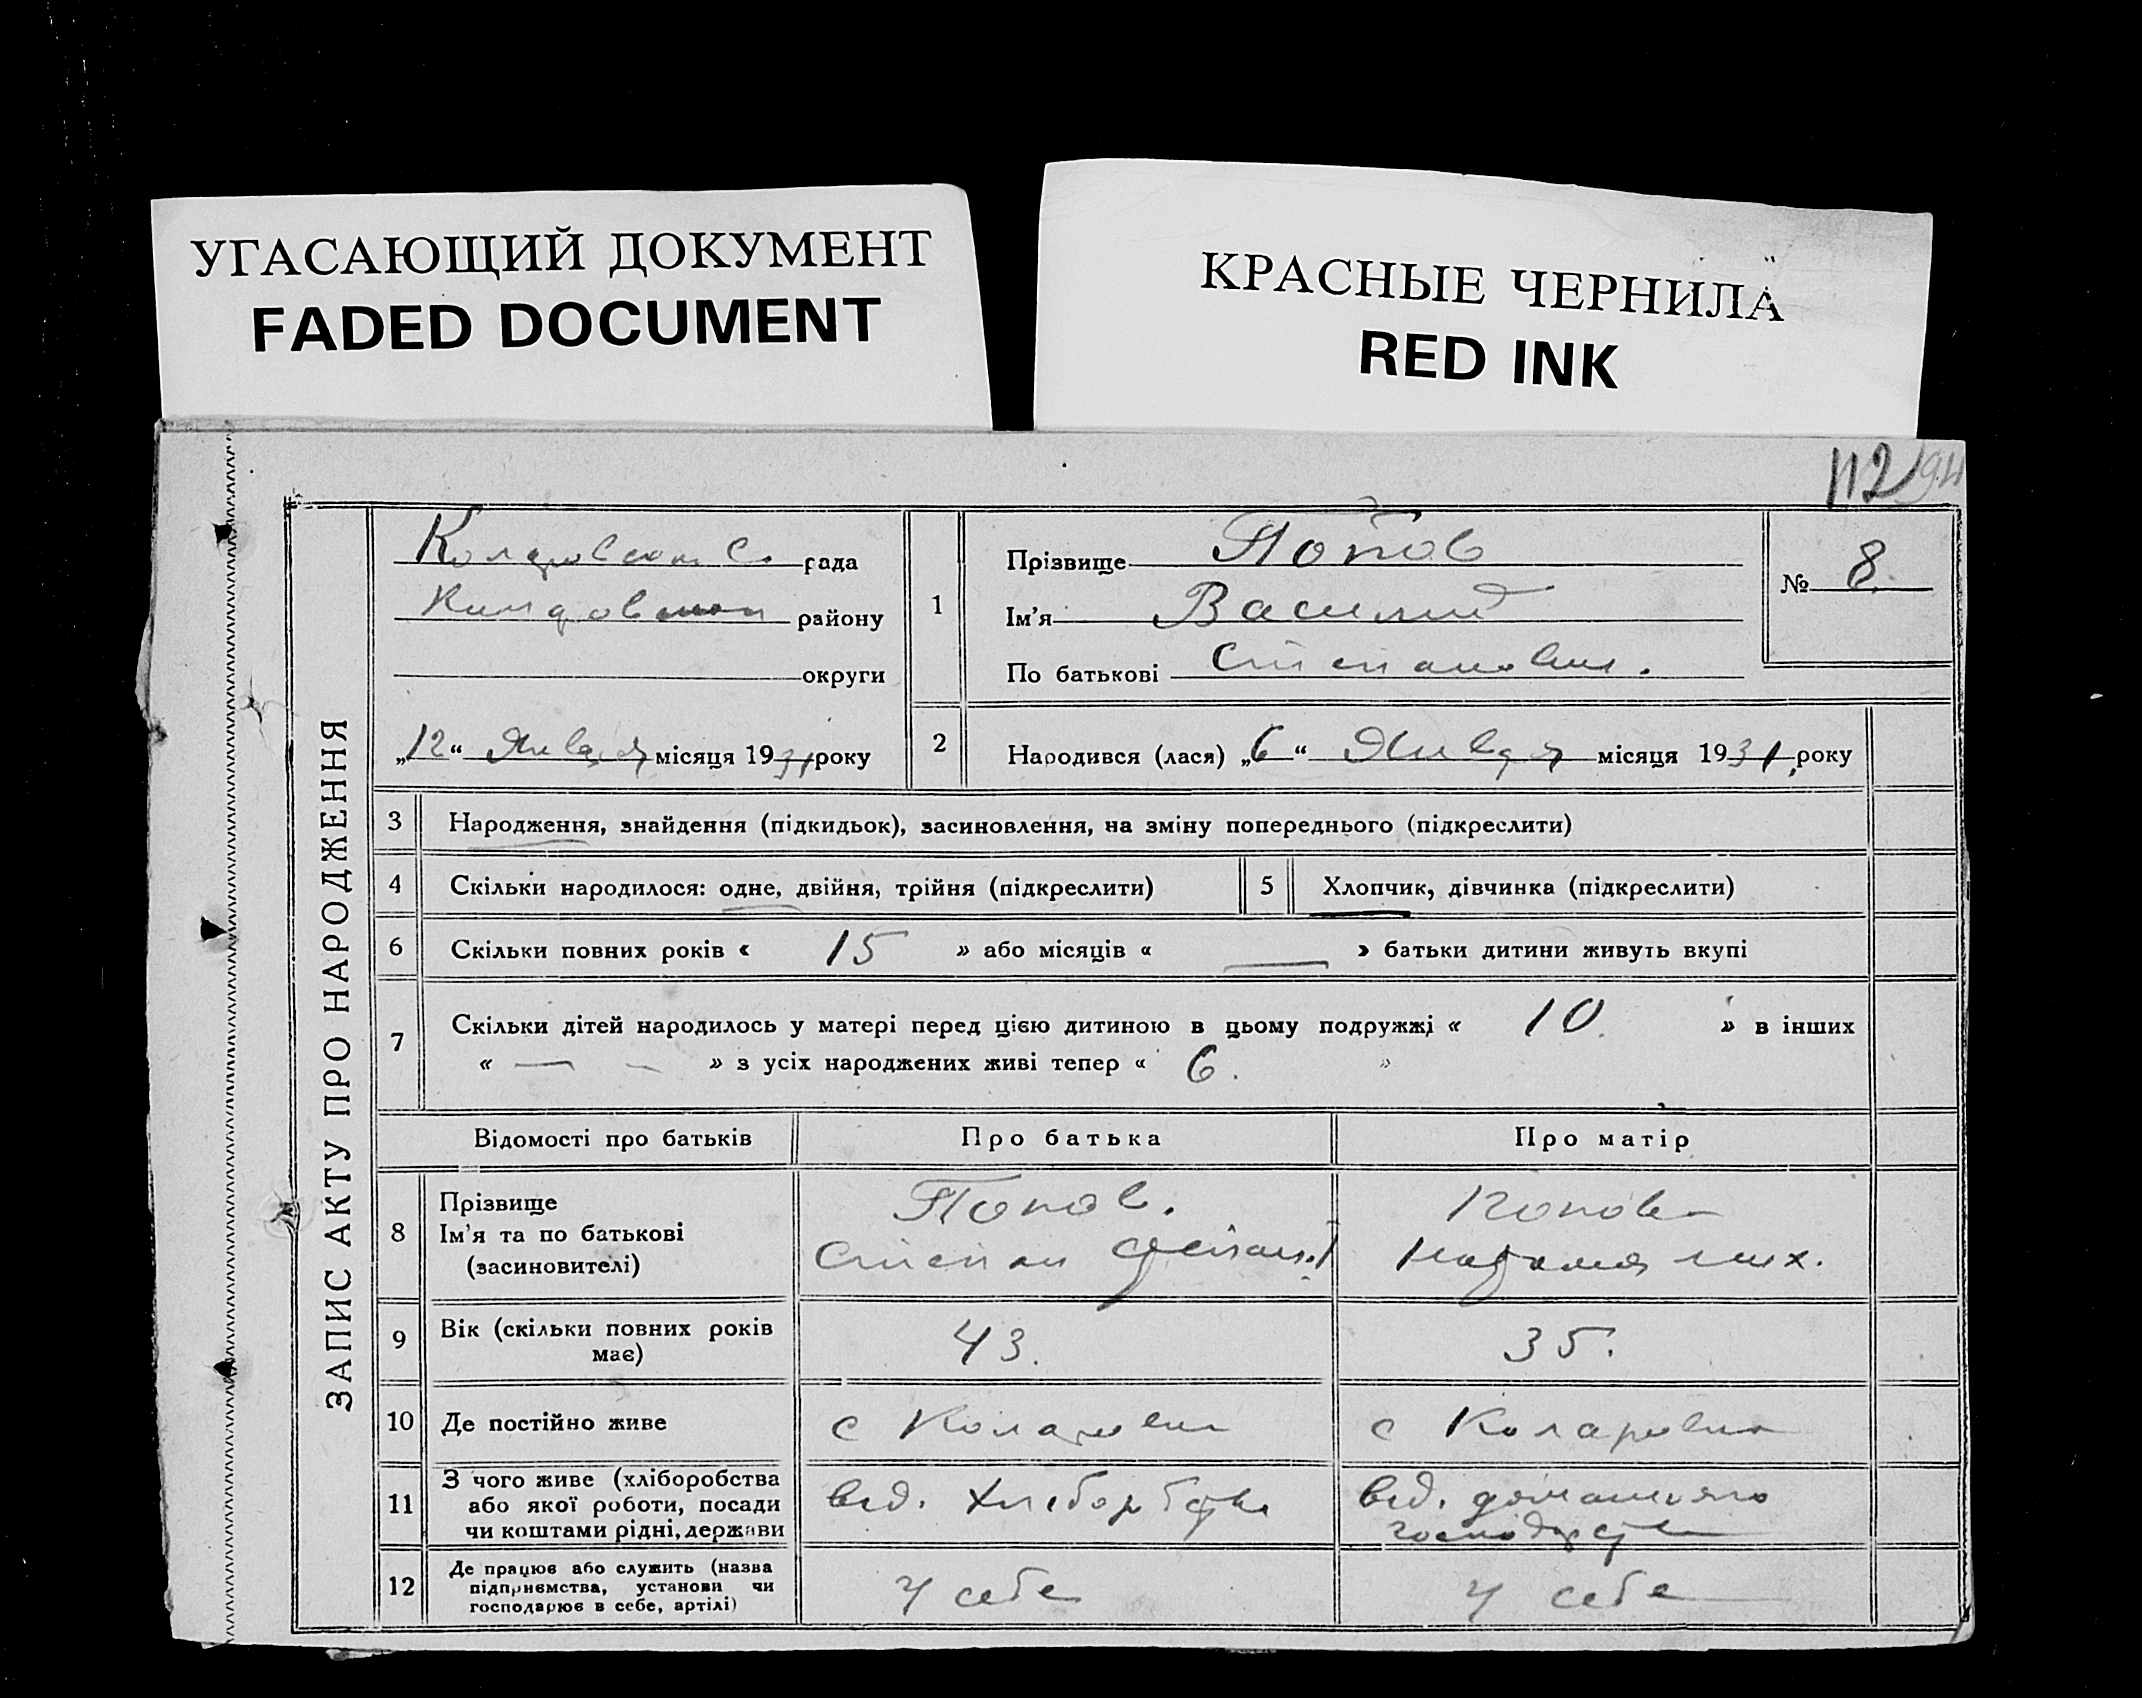 УГАСАЮЩИЙ ДОКУМЕНТ
FADED DOCUMENT
КРАСНЫЕ ЧЕРНИЛА
RED INK
112
ЗАПИС АКТУ ПРО НАРОДЖЕННЯ
рада
району
округи
„12“ Января місяця 1931 року
1
Прізвище Попов
Ім'я Василий
По батькові Степанович.
№ 8.
2
Народився (лася) „6“ Января місяця 1931 року
3 Народження, знайдення (підкидьок), засиновлення, на зміну попереднього (підкреслити)
4 Скільки народилося: одне, двійня, трійня (підкреслити)
5 Хлопчик, дівчинка (підкреслити)
6 Скільки повних років « 15 » або місяців « — » батьки дитини живуть вкупі
7 Скільки дітей народилось у матері перед цією дитиною в цьому подружжі « 10. » в інших
« — — » з усіх народжених живі тепер « 6. »
Відомості про батьків
Про батька
Про матір
8
Прізвище
Ім'я та по батькові
(засновителі)
Попов.
Степан
Попова
мих.
9
Вік (скільки повних років
має)
43.
35.
10 Де постійно живе
с
с Коларовка
11
З чого живе (хліборобства
або якої роботи, посади
чи коштами рідні, держави
від. хлеборобства
від. домашняго
господарства
12
Де працює або служить (назва
підприємства, установи чи
господарює в себе, артілі)
у себе
у себе